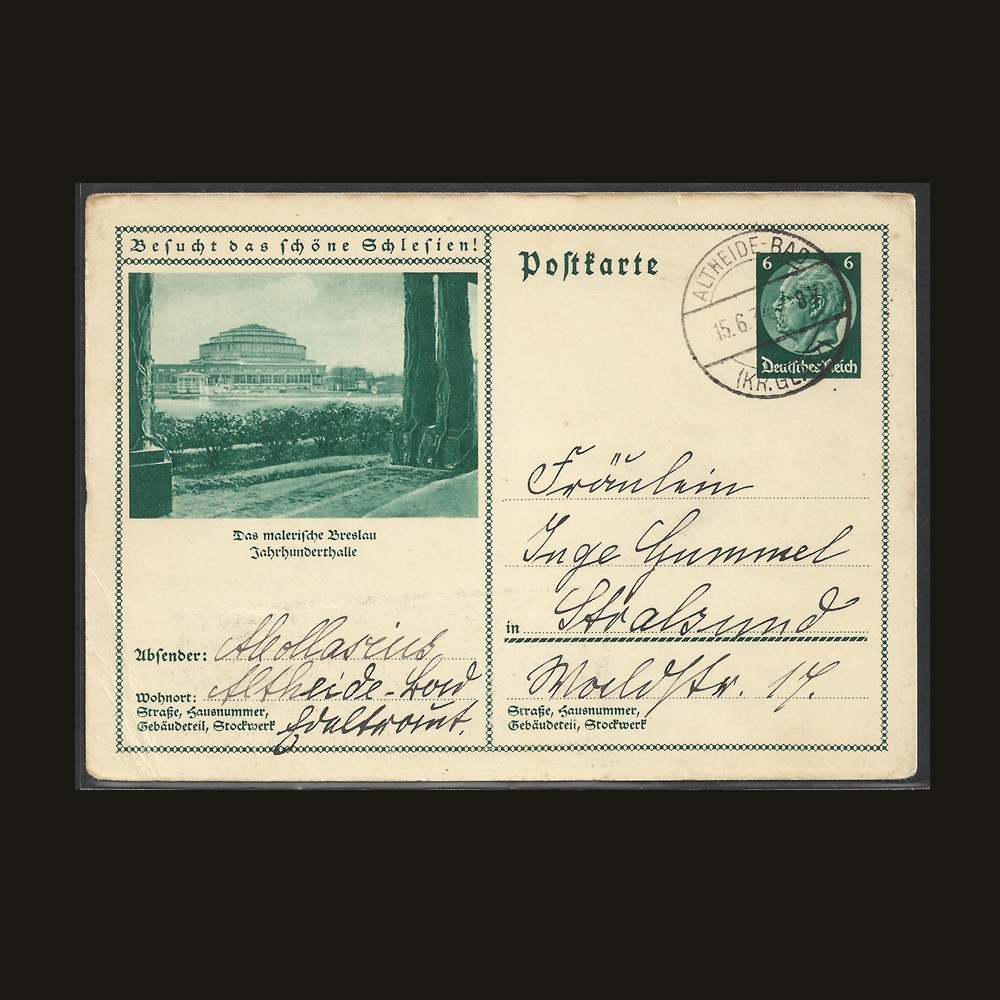 Besucht das schöne Schlesien!
Das malerische Breslau
Jahrhunderthalle
Absender:
Wohnort: Altheide-Bad
Straße, Hausnummer,
Gebäudeteil, Stockwerk Edeltraut.
Postkarte
ALTHEIDE-BAD
15.6.
(KR.GL
6 6
Deutsches Reich
Fräulein
Inge Gummel
in Stralsund
Waldstr. 14.
Straße, Hausnummer,
Gebäudeteil, Stockwerk